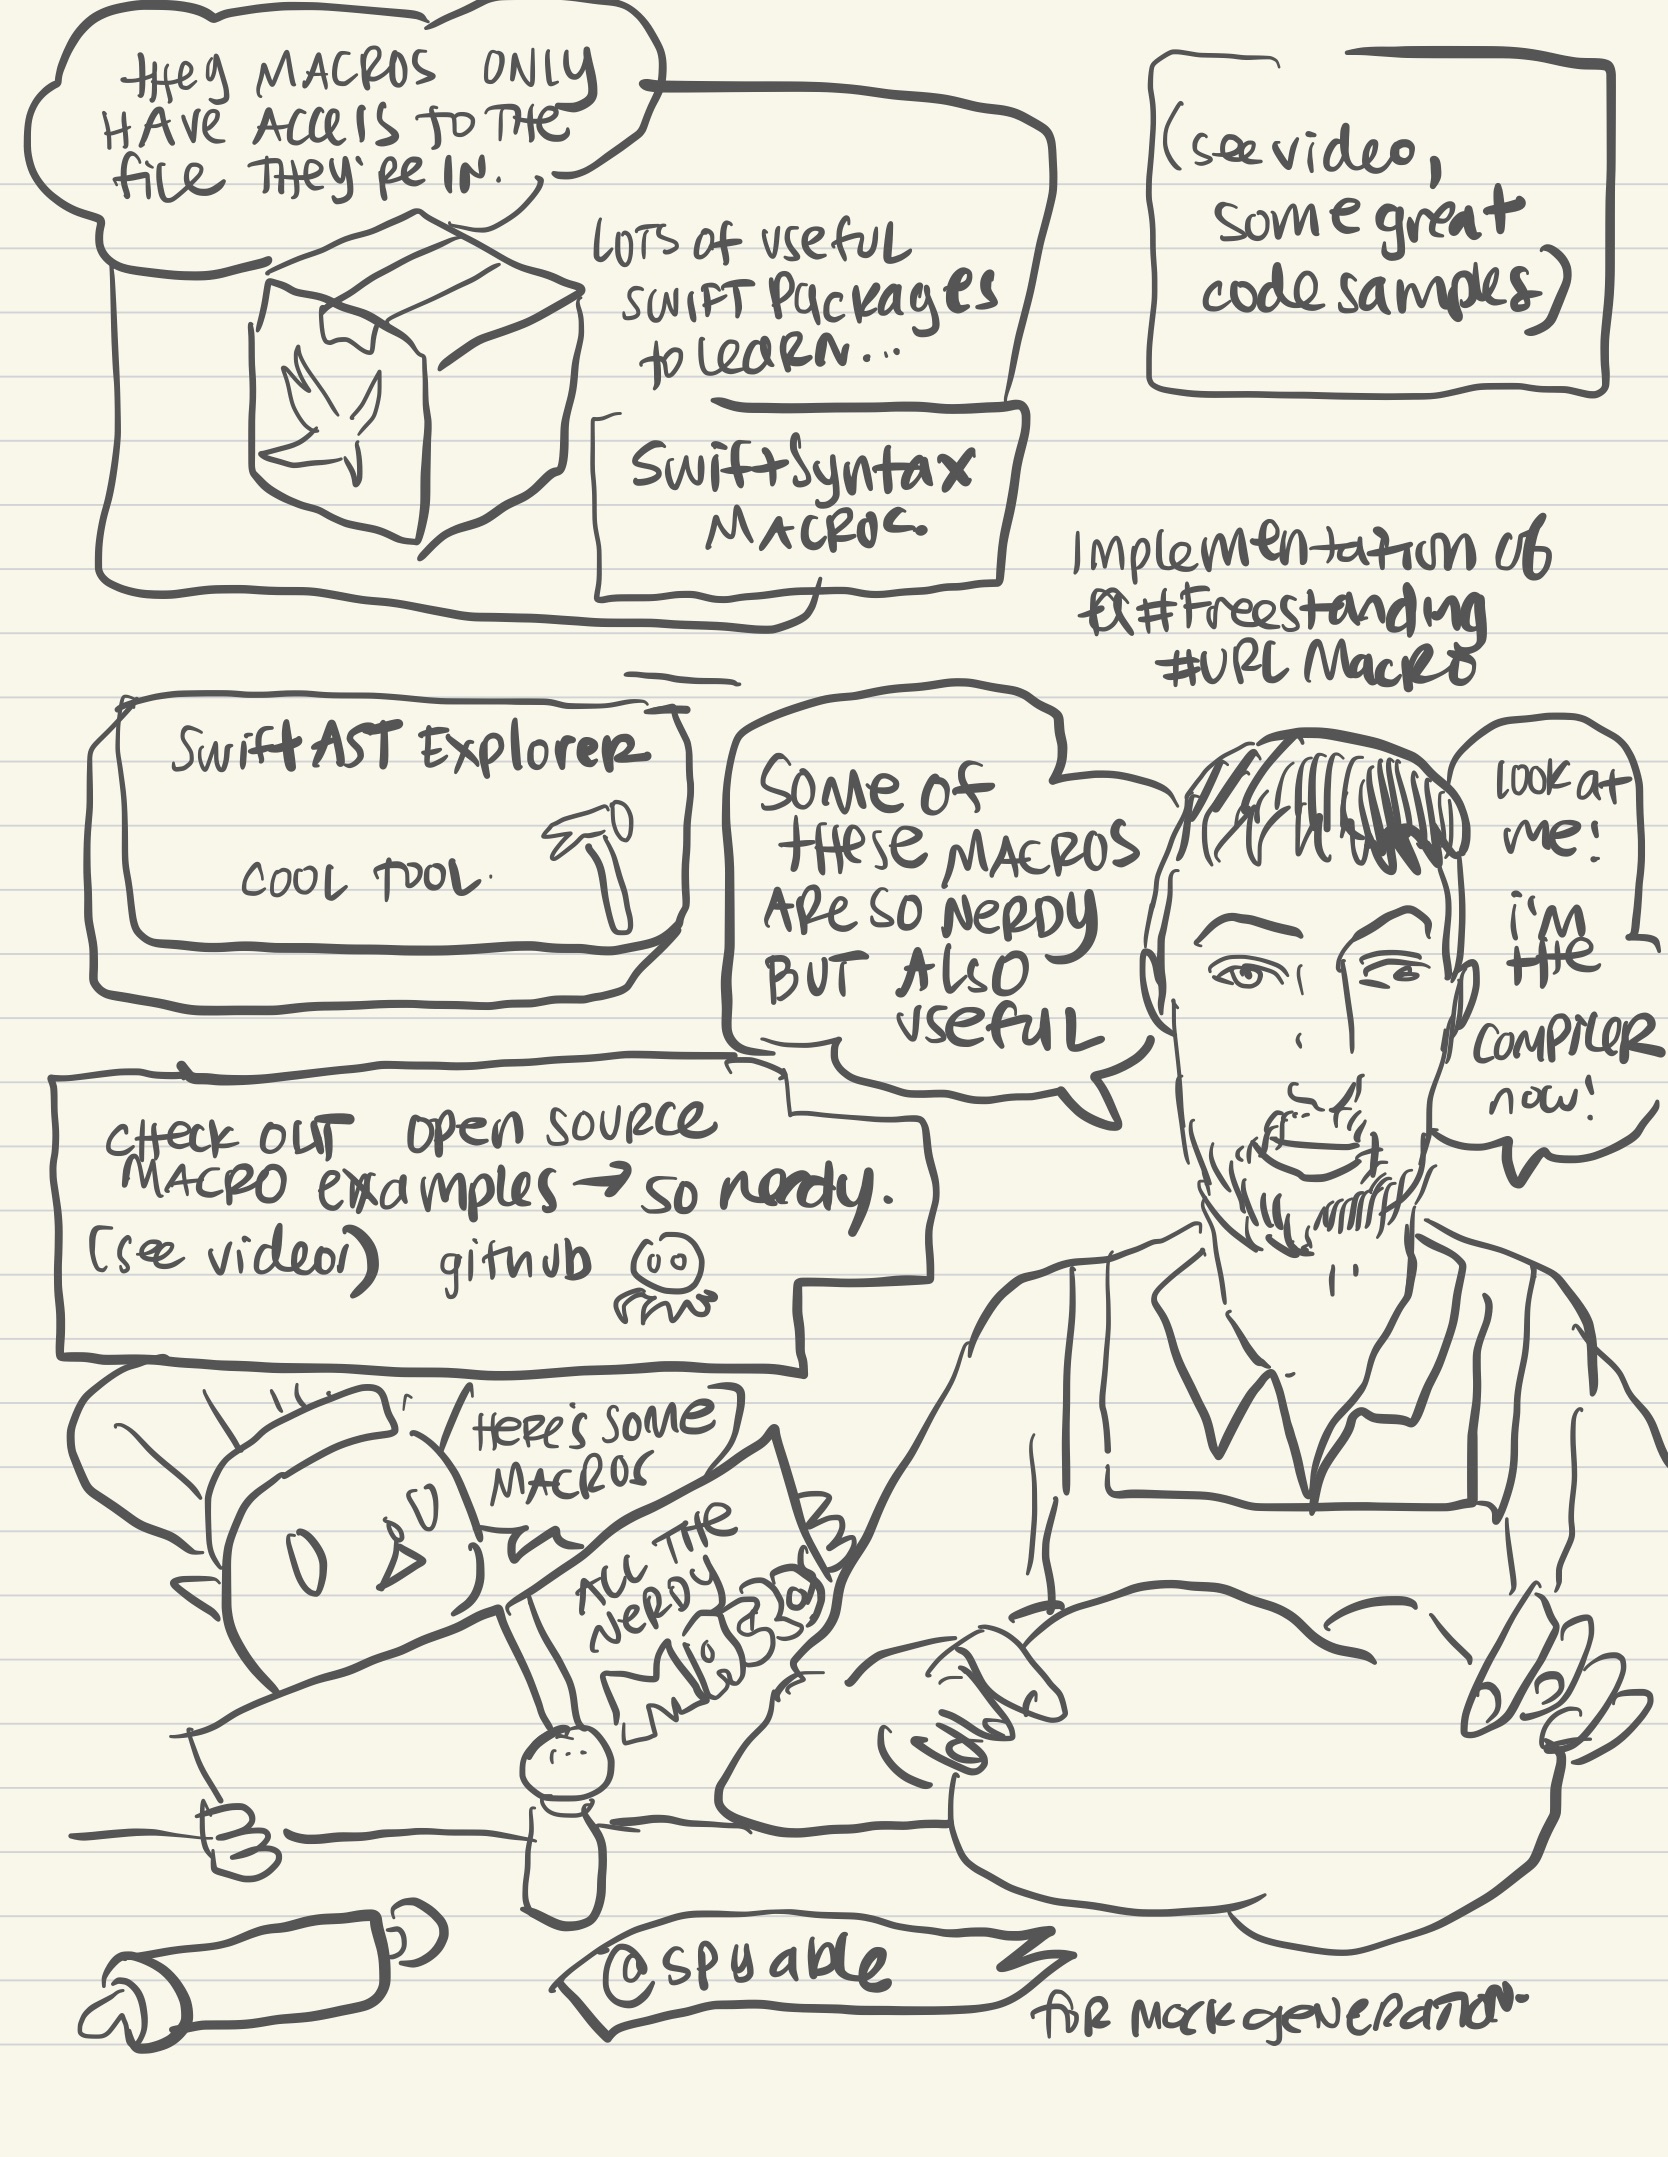 They MACROS ONLY
HAVE ACCESS TO THE
file THEY'RE IN.
LOTS of useful
SWIFT Packages
to LEARN...
SwiftSyntax
MACROS
(see video,
some great
code samples)
Implementation of
#Freestanding
#URL MACRO
Swift AST Explorer
COOL TOOL.
Some of
these MACROS
ARE SO NERDY
BUT ALSO
useful
Look at
me!
i'm
the
compiler
now!
CHECK OUT open source
MACRO examples → so nerdy.
(see video) github
HERE'S SOME
MACROS
ALL THE
NERDY
@spyable
for mock generation.